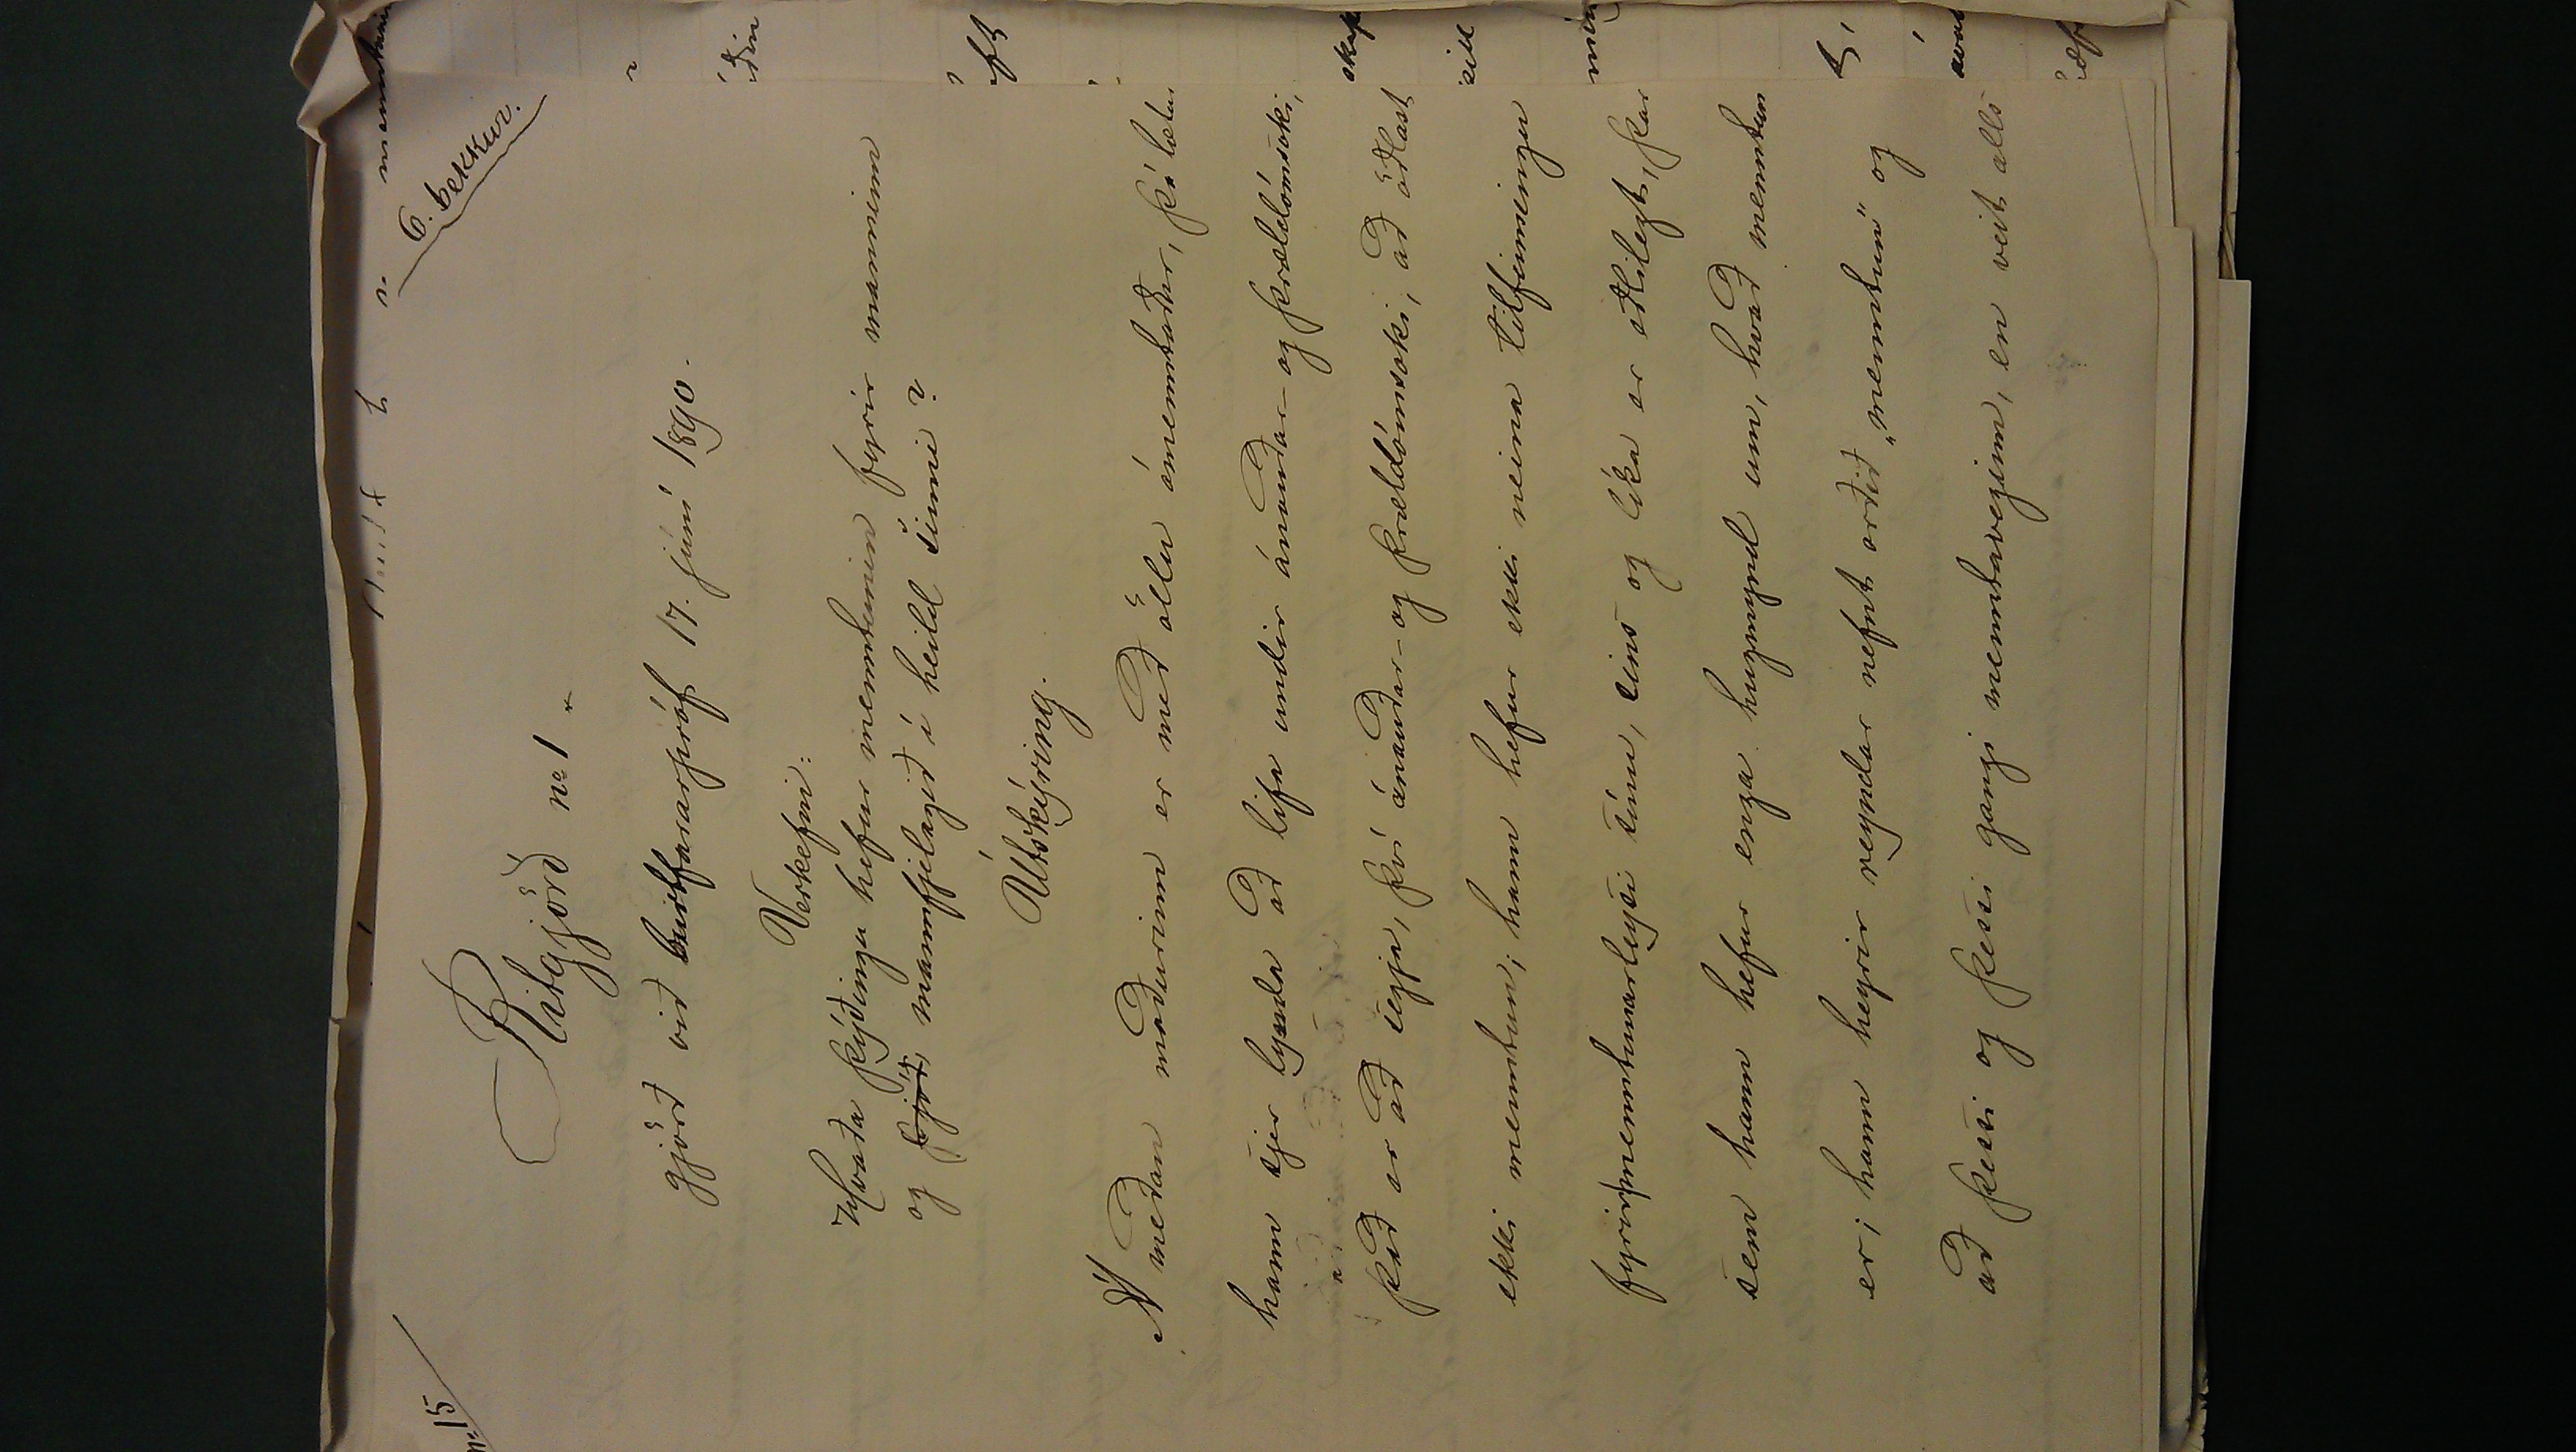 n:15
6. bekkur.
Ritgjörð no 1
gjörð við burtfararpróf 17. júní 1890.
Verkefni:
Hvaða þýðingu hefur menntunin fyrir manninn
og þjóð mannfjelagið í heild sinni?
Útskýring.
Á meðan maðurinn er með öllu ómenntaður, þá lætur
hann sjer lynda að lifa undir ánauðar- og þrældómsoki,
það er að segja, því ánauðar- og þrældómsoki, að öðlast
ekki menntun; hann hefur ekki neina tilfinningu
fyrir menntunarleysi sínu, eins og líka er eðlilegt, þar
sem hann hefur enga hugmynd um, hvað menntun
er; hann heyrir reyndar nefnt orðið „menntun" og
að þessi og þessi gangi menntaveginn, en veit alls